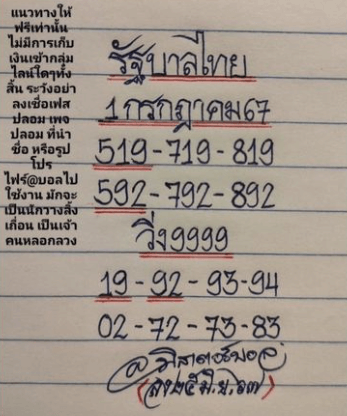 แนวทางให้
ฟรีเท่านั้น
ไม่มีการเก็บ
เงินเข้ากลุ่ม
ไลน์ใดๆทั้ง
สิ้น ระวังอย่า
ลงเชื่อเฟส
ปลอม เพจ
ปลอม ที่นำ
ชื่อ หรือรูป
โปร
ไฟร์@บอลไป
ใช้งาน มักจะ
เป็นนักวางลิ้ง
เถื่อน เป็นเจ้า
คนหลอกลวง
รัฐบาลไทย
1 กรกฎาคม67
519-719-819
592-792-892
วิ่ง9999
19-92-93-94
02-72-73-83